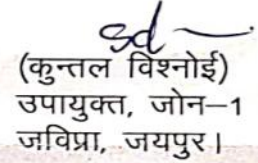 sd —
(कुन्तल विश्नोई)
उपायुक्त, जोन–1
जविप्रा, जयपुर।